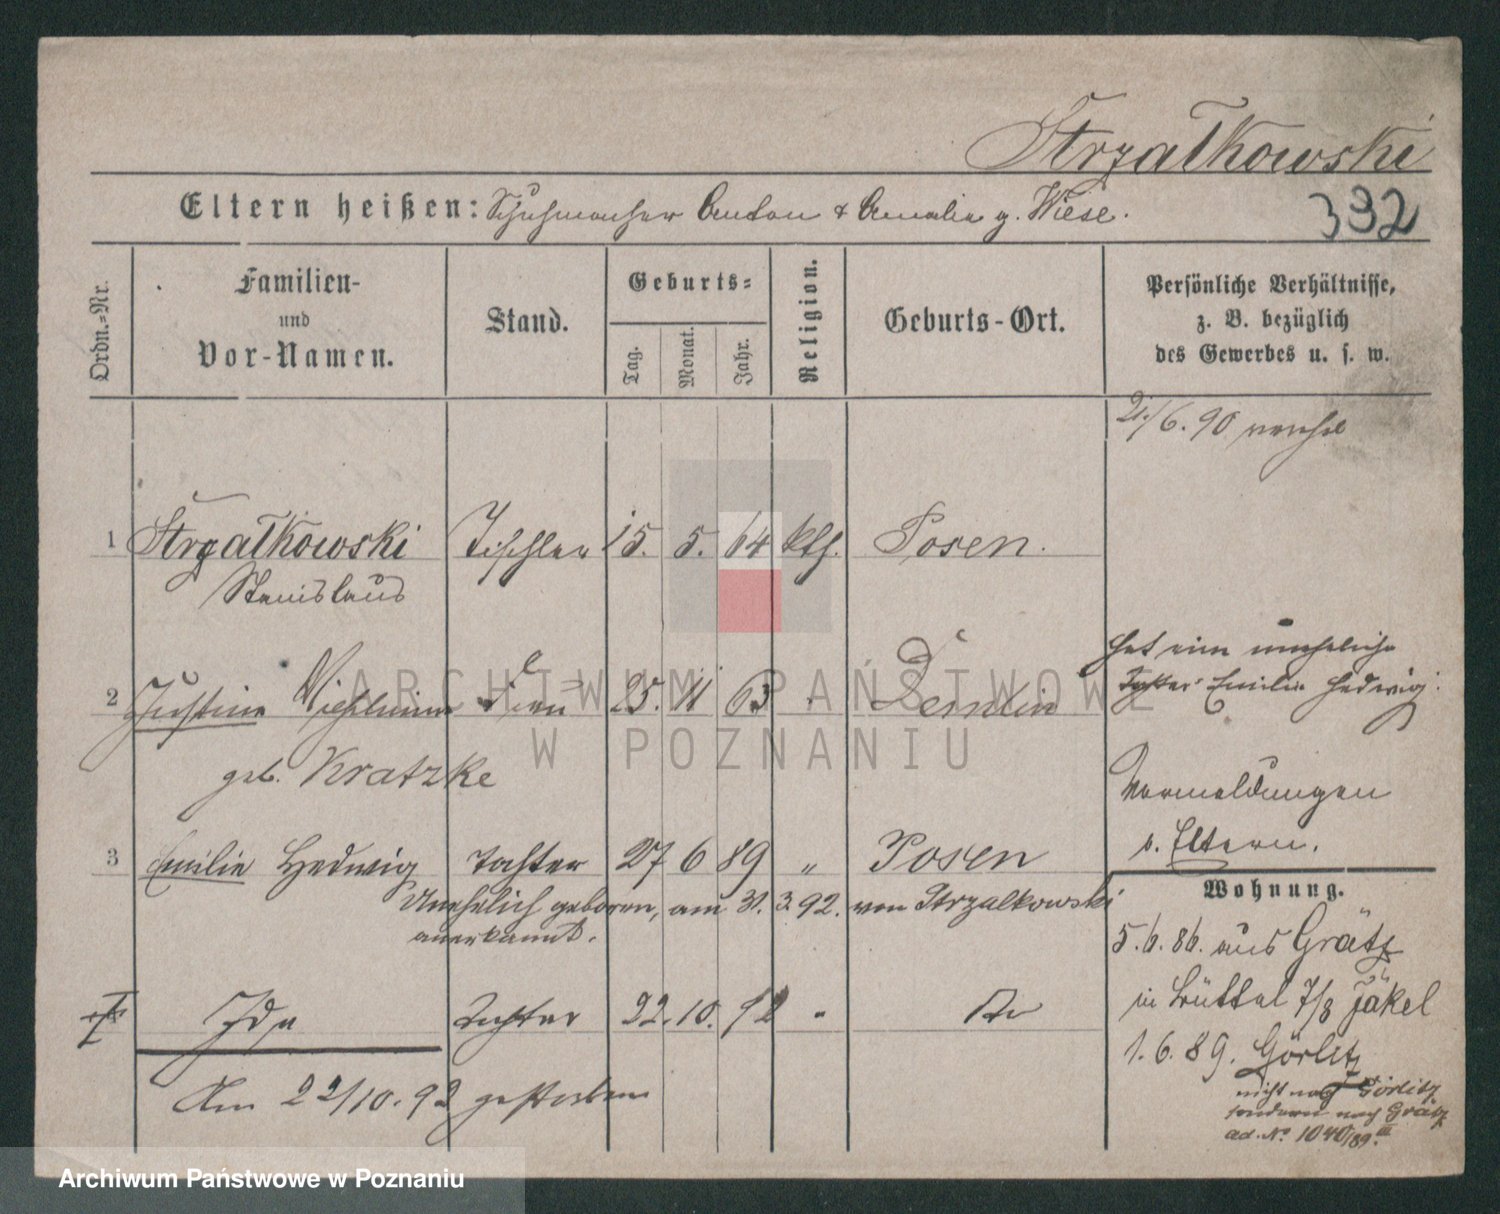 Strzałkowski
Eltern heißen: Schuhmacher Anton & Amalia g. Wiese.
332
Ordn.=Nr.
Familien-
und
Vor-Namen.
Stand.
Geburts=
Tag.
Monat.
Jahr.
Religion.
Geburts-Ort.
Persönliche Verhältnisse,
z. B. bezüglich
des Gewerbes u. s. w.
21/6. 90
1 Strzałkowski Tischler 15. 5. 64 kth. Posen.
Stanislaus
hat eine uneheliche
2 Justine Wilhelmine Frau 25. 11 63 " Demlin Tochter Emilie Hedwig.
geb. Kratzke
Vermeldungen
b. Eltern.
3 Emilie Hedwig Tochter 27 6 89 " Posen
Wohnung.
Unehelich geboren, am 31. 3. 92. von Strzalkowski
anerkannt.
5. 6. 86. aus Grätz
in 7/8 Jäkel
Ida Tochter 22. 10. 92 "
1. 6. 89. Görlitz
nicht nach Görlitz
sondern nach Grätz
ad. No 1040/89. III
Am 22/10. 92 gestorben
ARCHIWUM PAŃSTWOWE
W POZNANIU
Archiwum Państwowe w Poznaniu